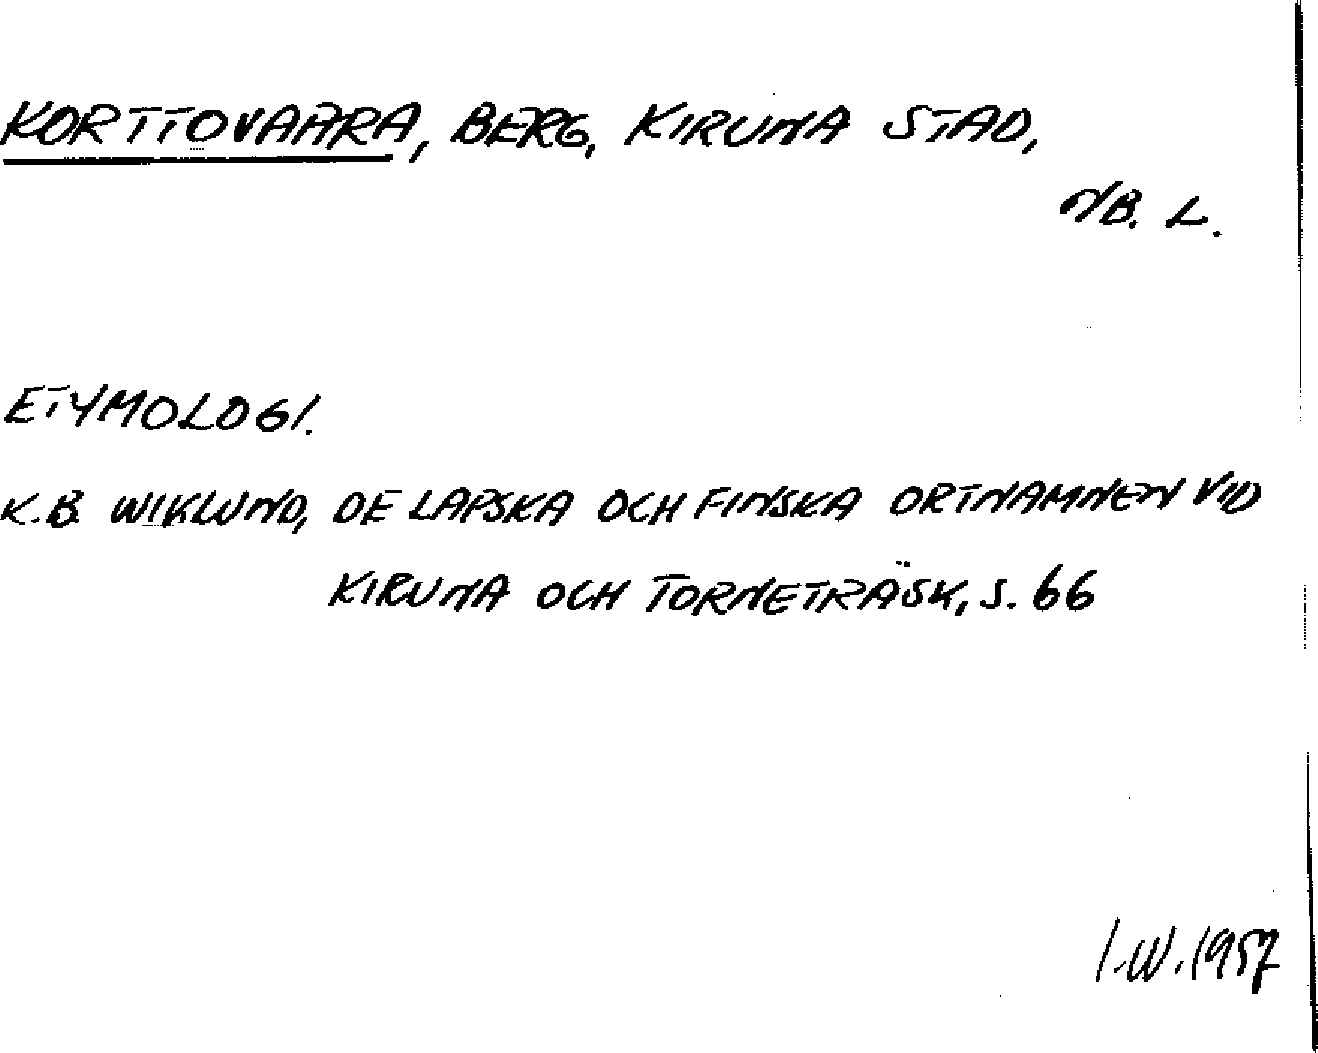 KORTTOVAARA, BERG, KIRUNA STAD,
NB. L.
ETYMOLOGI.
K.B. WIKLUND, DE LAPSKA OCH FINSKA ORTNAMNEN VID
KIRUNA OCH TORNETRÄSK, S. 66
I.W. 1957